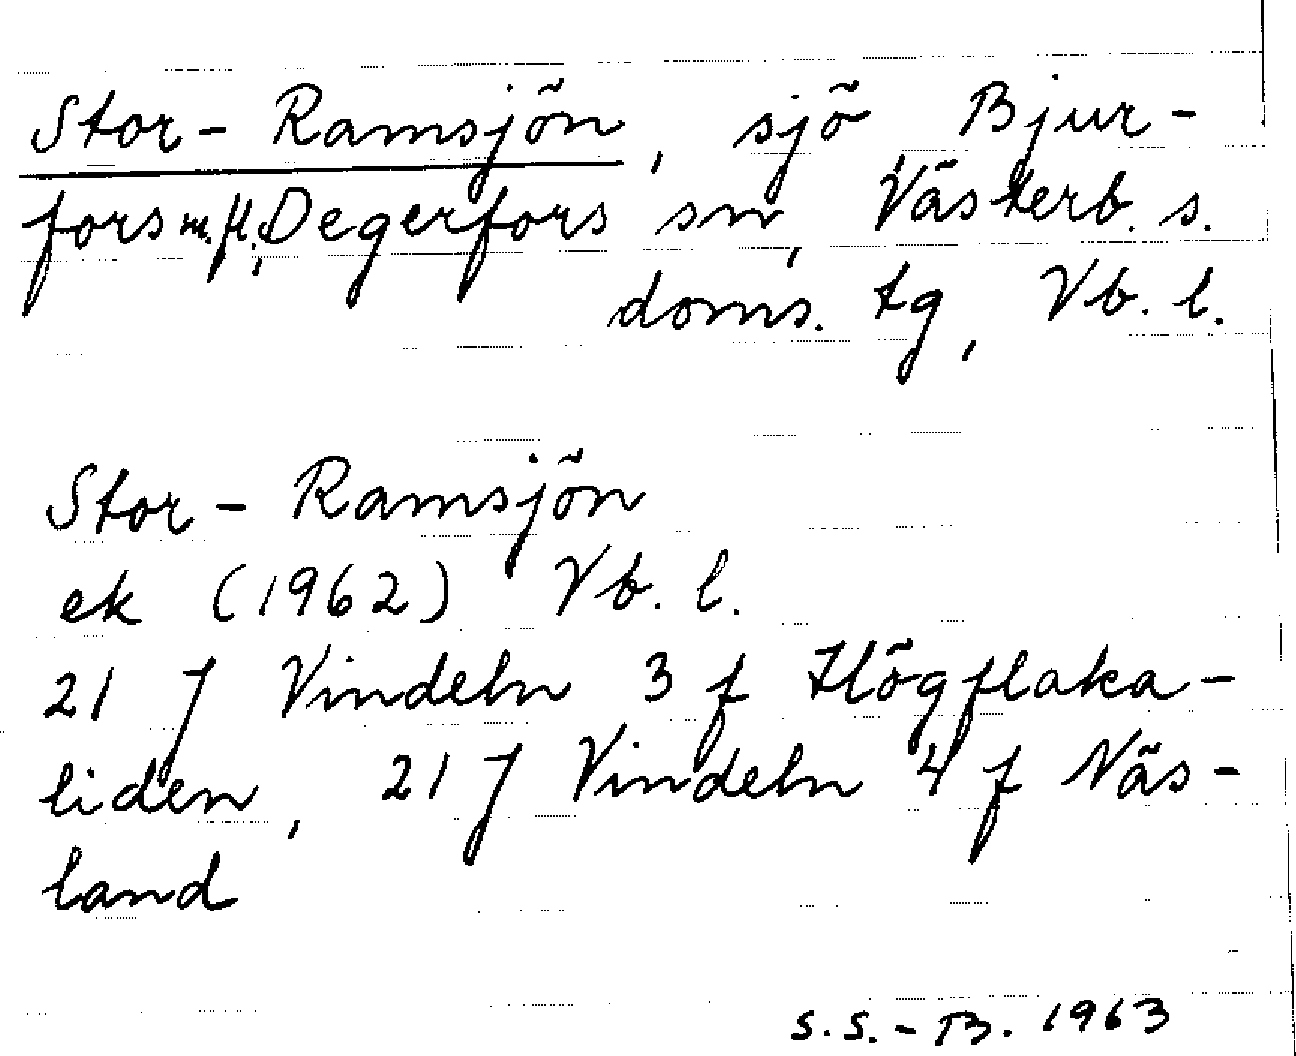 Stor-Ramsjön, sjö Bjur-
fors m.fl., Degerfors sn, Västerb. s.
doms. tg, Vb. l.
Stor-Ramsjön
ek (1962) Vb. l.
21 J Vindeln 3 f Högflaka-
liden, 21 J Vindeln 4 f Näs-
land
S.S.-B. 1963